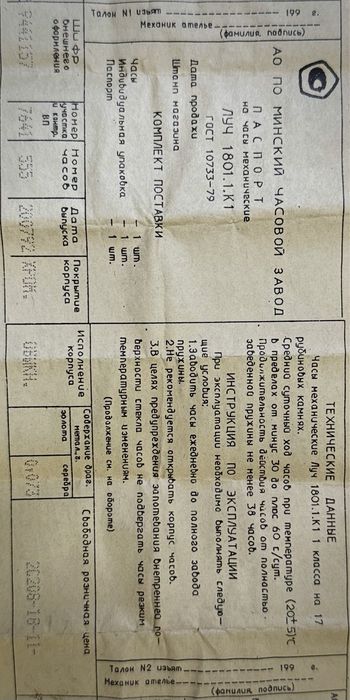 Талон N1 изъят 199 г.
Механик ателье
(фамилия, подпись)
АО ПО МИНСКИЙ ЧАСОВОЙ ЗАВОД
ПАСПОРТ
на часы механические
ЛУЧ 1801.1.К1
ГОСТ 10733-79
Дата продажи
Штамп магазина
КОМПЛЕКТ ПОСТАВКИ
Часы – 1 шт.
Индивидуальная упаковка – 1 шт.
Паспорт – 1 шт.
ТЕХНИЧЕСКИЕ ДАННЫЕ
Часы механические Луч 1801.1.К1 1 класса на 17
рубиновых камнях.
Средний суточный ход часов при температуре (20±5)°С
в пределах от минус 30 до плюс 60 с/сут.
Продолжительность действия часов от полностью
заведенной пружины не менее 38 часов.
ИНСТРУКЦИЯ ПО ЭКСПЛУАТАЦИИ
При эксплуатации необходимо выполнять следую-
щие условия:
1.Заводить часы ежедневно до полного завода
пружины.
2.Не рекомендуется открывать корпус часов.
3.В целях предупреждения запотевания внутренней по-
верхности стекла часов не подвергать часы резким
температурным изменениям.
(Продолжение см. на обороте)
Шифр внешнего оформления
Номер участка и контр. ВП
Номер часов
Дата выпуска
Покрытие корпуса
Исполнение корпуса
Содержание драг. метал., г.
золота
серебра
Свободная розничная цена
7641 555 200792 ХРОМ. ОБЫКН. 0.073
Талон N2 изъят 199 г.
Механик ателье
(фамилия, подпись)